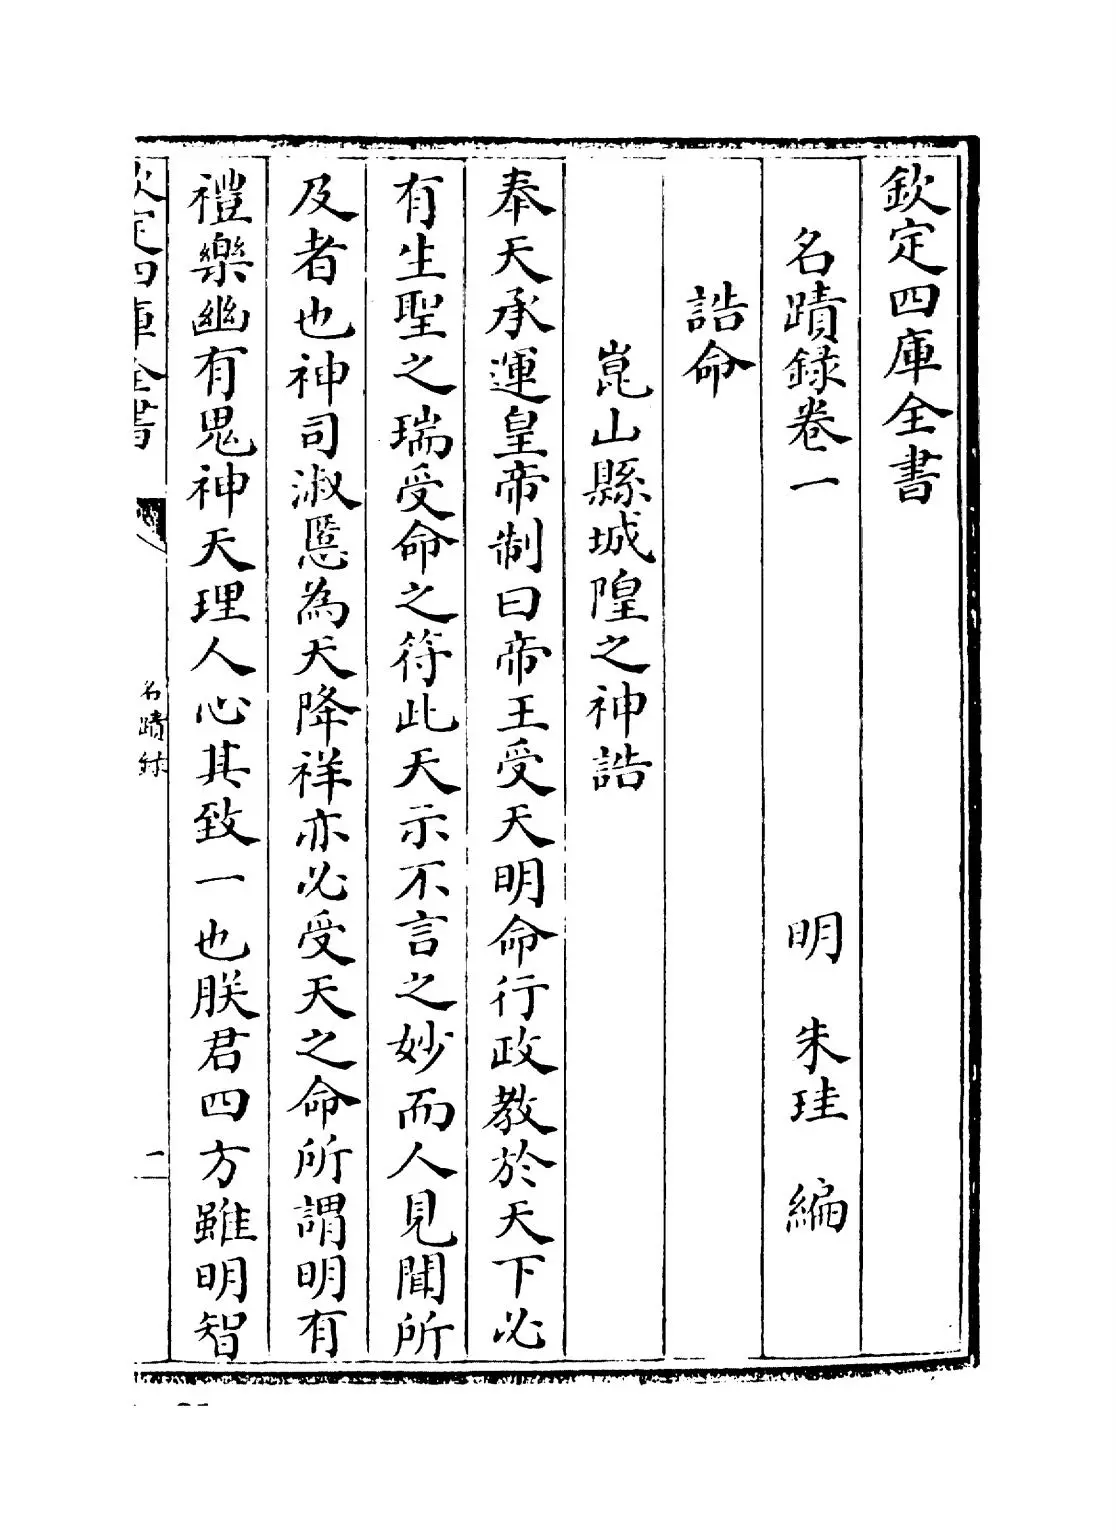 欽定四庫全書
名蹟録卷一
明 朱珪 編
誥命
崑山縣城隍之神誥
奉天承運皇帝制曰帝王受天明命行政教於天下必
有生聖之瑞受命之符此天示不言之妙而人見聞所
及者也神司淑慝為天降祥亦必受天之命所謂明有
禮樂幽有鬼神天理人心其致一也朕君四方雖明智
欽定四庫全書
名蹟録
二